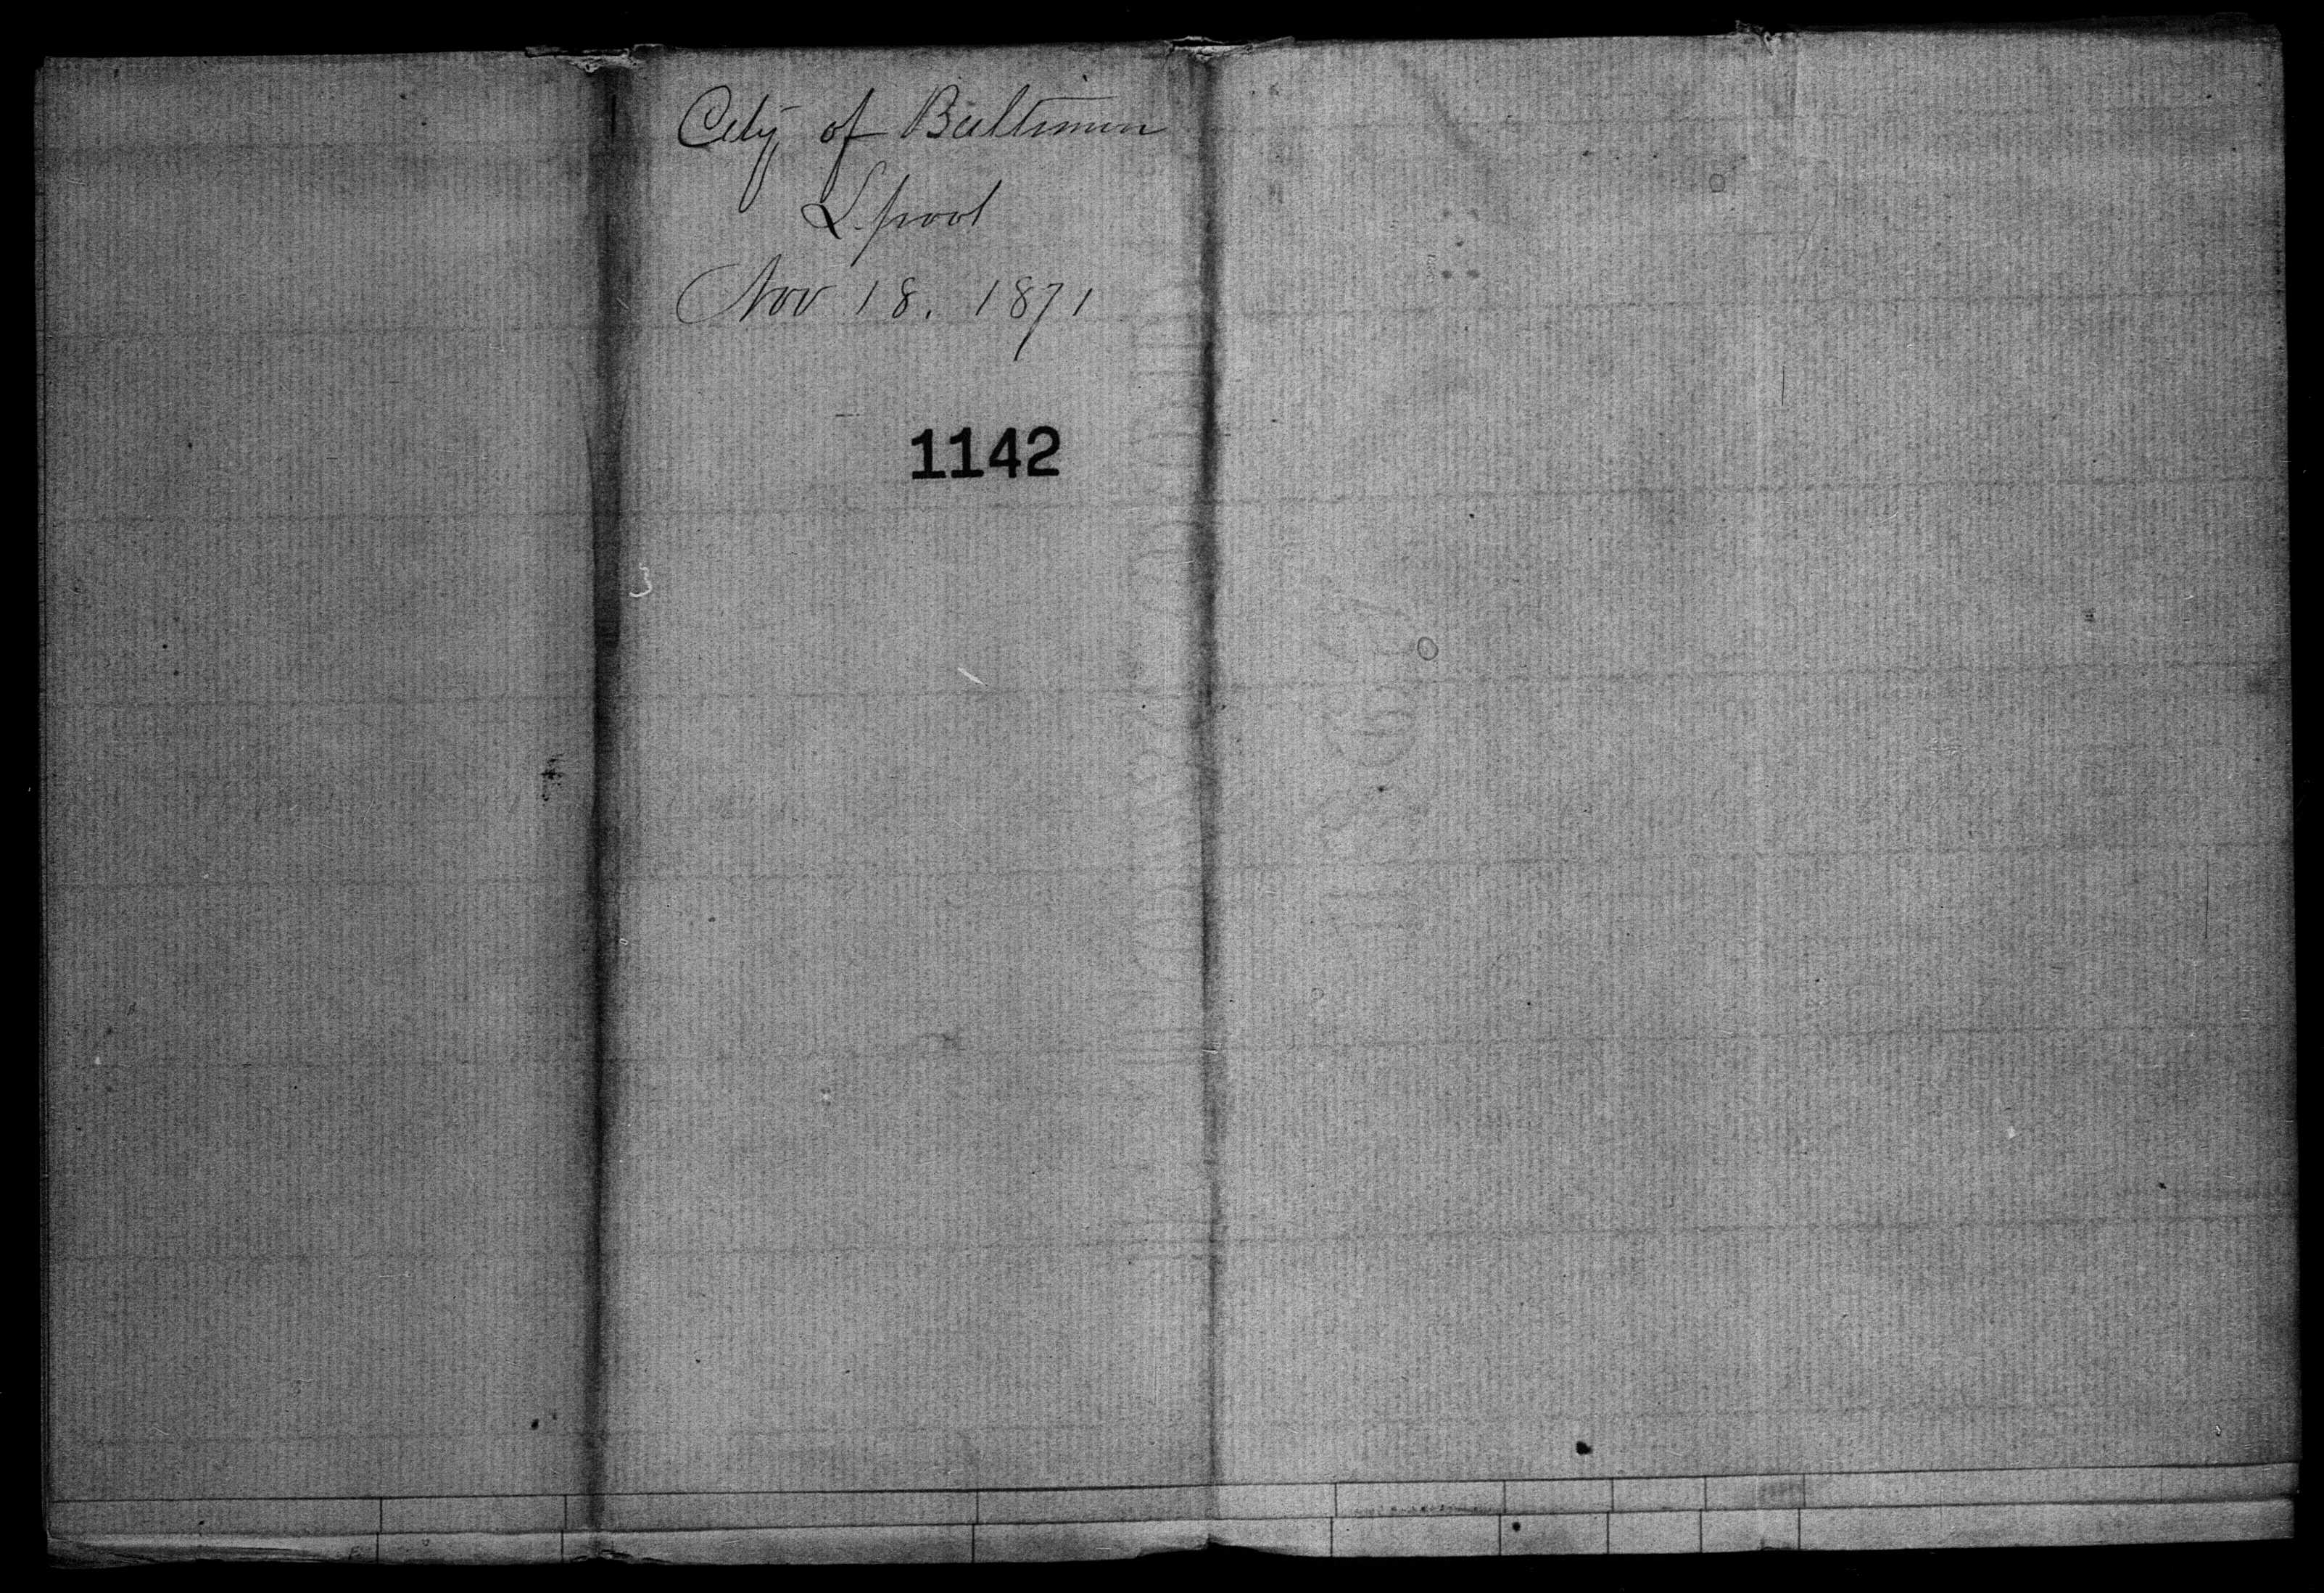 City of Baltimore
L.pool
Nov 18. 1871
1142